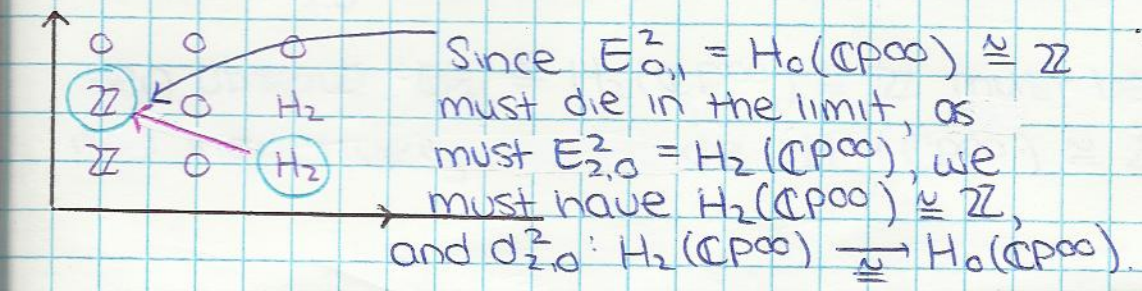 0 0 0 Since E²₀,₁ = H₀(ℂP∞) ≅ ℤ
ℤ 0 H₂ must die in the limit, as
ℤ 0 H₂ must E²₂,₀ = H₂(ℂP∞), we
must have H₂(ℂP∞) ≅ ℤ,
and d²₂,₀: H₂(ℂP∞) →≅ H₀(ℂP∞).